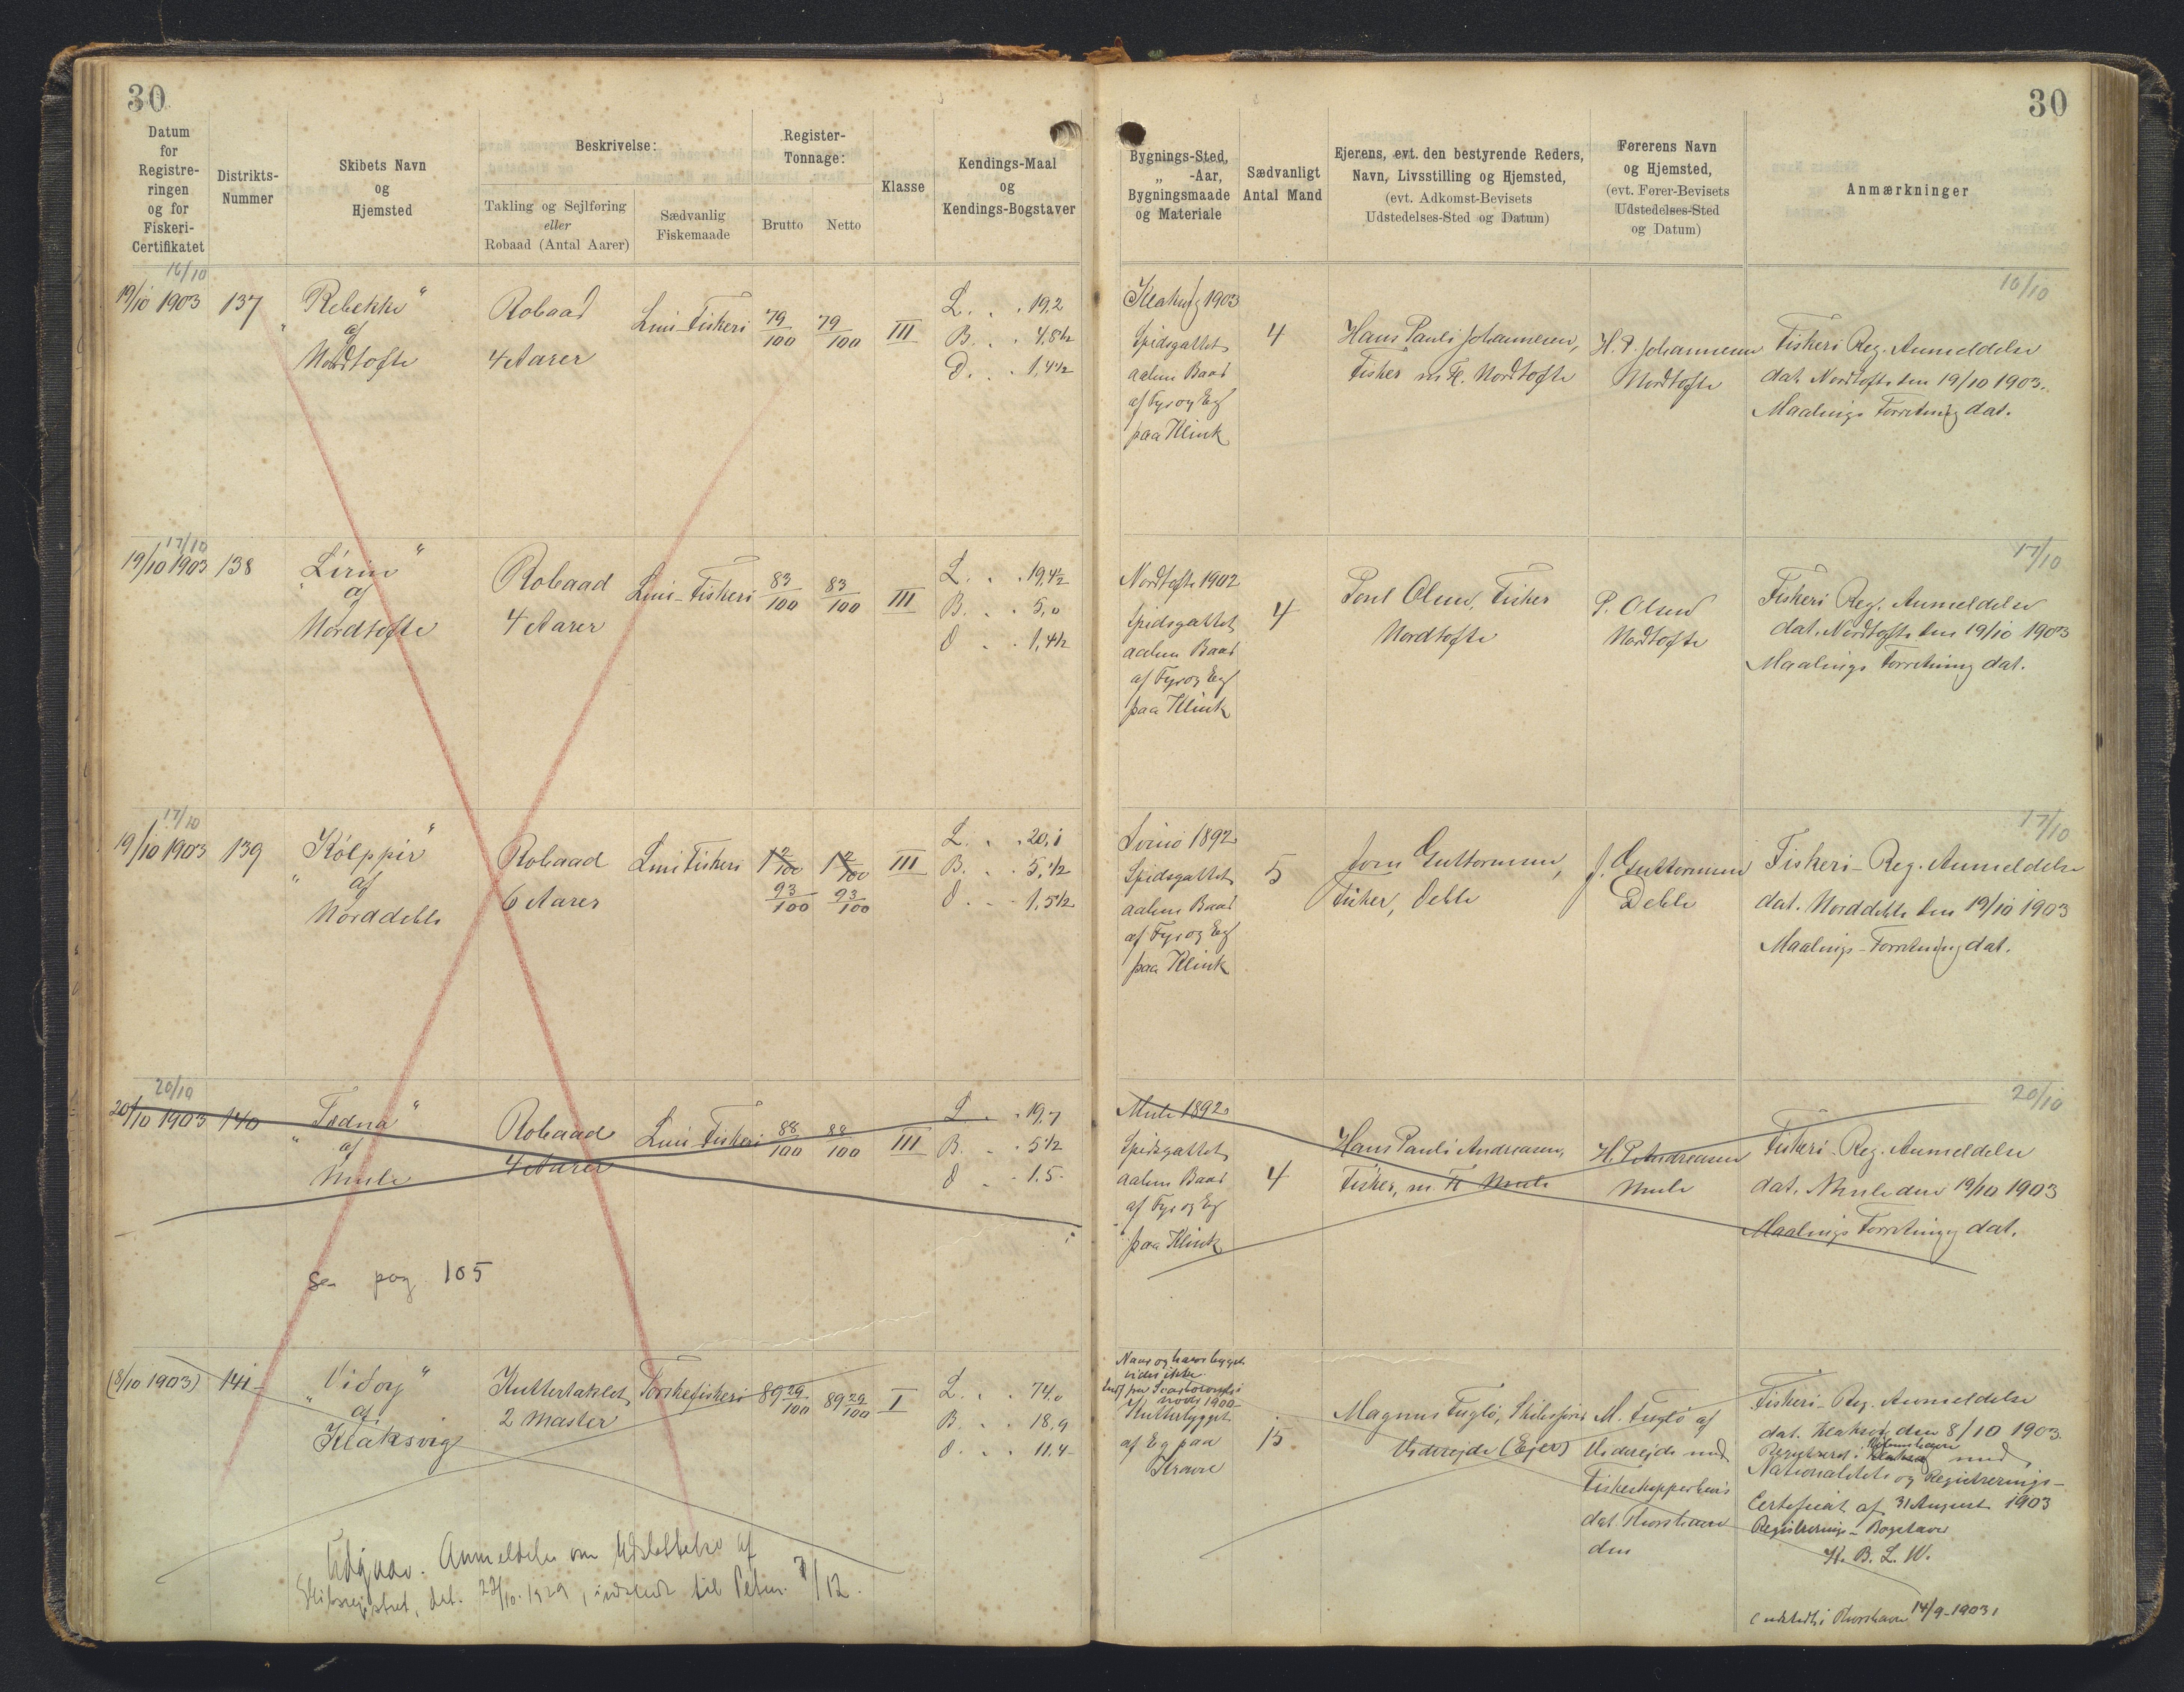 30
30
Datum
for
Registre-
ringen
og for
Fiskeri-
Certifikatet
Distrikts-
Nummer
Skibets Navn
og
Hjemsted
Beskrivelse:
Takling og Sejlføring
eller
Robaad (Antal Aarer)
Sædvanlig
Fiskemaade
Register-
Tonnage:
Brutto
Netto
Klasse
Kendings-Maal
og
Kendings-Bogstaver
Bygnings-Sted,
„ -Aar,
Bygningsmaade
og Materiale
Sædvanligt
Antal Mand
Ejerens, evt. den bestyrende Reders,
Navn, Livsstilling og Hjemsted,
(evt. Adkomst-Bevisets
Udstedelses-Sted og Datum)
Førerens Navn
og Hjemsted,
(evt. Fører-Bevisets
Udstedelses-Sted
og Datum)
Anmærkninger
16/10
19/10 1903
137
„Rebekka“
af
Nordtofte
Robaad
4 Aarer
Line-Fiskeri
79/100
79/100
III
L. . . 19,2
B. . . 4,8½
D. . . 1,4½
Klaksvig 1903
Spidsgattet
aaben Baad
af Fyr og Eg
paa Klink
4
Hans Pauli Johannesen,
Fisker m. F. Nordtofte
H. P. Johannesen
Nordtofte
16/10
Fiskeri Reg. Anmeldelse
dat. Nordtofte den 19/10 1903.
Maalings Forretning dat.
17/10
19/10 1903
138
af
Nordtofte
Robaad
4 Aarer
Line-Fiskeri
83/100
83/100
III
L. . . 19,4½
B. . . 5,0
D . . 1,4½
Nordtofte 1902
Spidsgattet
aaben Baad
af Fyr og Eg
paa Klink
4
Poul Olsen, Fisker
Nordtofte
P. Olsen
Nordtofte
17/10
Fiskeri Reg. Anmeldelse
dat. Nordtofte den 19/10 1903
Maalings Forretning dat.
17/10
19/10 1903
139
„Kólppir“
af
Norddeble
Robaad
6 Aarer
Line Fiskeri
1 2/100
1 2/100
93/100
93/100
III
L. . . 20,1
B. . . 5,½
D . . . 1,5½
1892
Spidsgattet
aaben Baad
af Fyr og Eg
paa Klink
5
Joen Guttormsen,
Fisker, Deble
J. Guttormsen
Deble
17/10
Fiskeri-Reg. Anmeldelse
dat. Norddeble den 19/10 1903
Maalings-Forretning dat.
20/10
20/10 1903
140
af
Mule
Robaad
4 Aarer
Line Fiskeri
88/100
88/100
III
L . . 19,7
B. . . 5½
D . . 1,5
Mule 1892
Spidsgattet
aaben Baad
af Fyr og Eg
paa Klink
4
Hans Pauli Andreasen,
Fisker, m. F. Mule
H. P. Andreasen
Mule
20/10
Fiskeri-Reg. Anmeldelse
dat. Mule den 19/10 1903
Maalings Forretning dat.
Se pag 105
(8/10 1903)
141
„Vidoy“
af
Klaksvig
Kuttertaklet
2 Master
Torskefiskeri
89 29/100
89 29/100
I
L. . . 74,0
B. . . 18,9
D. . . 11,4
Naar og hvor bygget
vides ikke.
Kutterbygget
af Eg paa
Kravel
15
Magnus Fuglø, Skibsfører
Viderejde (Ejer)
M. Fuglø af
Viderejde med
Fiskeskipperbevis
dat. Thorshavn
den
Fiskeri-Reg. Anmeldelse
dat. Klaksvig den 8/10 1903.
Registreret i Klaksvig med
Nationalitets og Registrerings-
Certificat af 31 August 1903
Registrerings-Bogstaver
N. B. L. W.
(udstedt i Thorshavn 14/9-1903)
Udgaar. Anmeldelse om Udslettelse af
Skibsregistret, dat. 22/10. 1929, indsendt til 7/12.